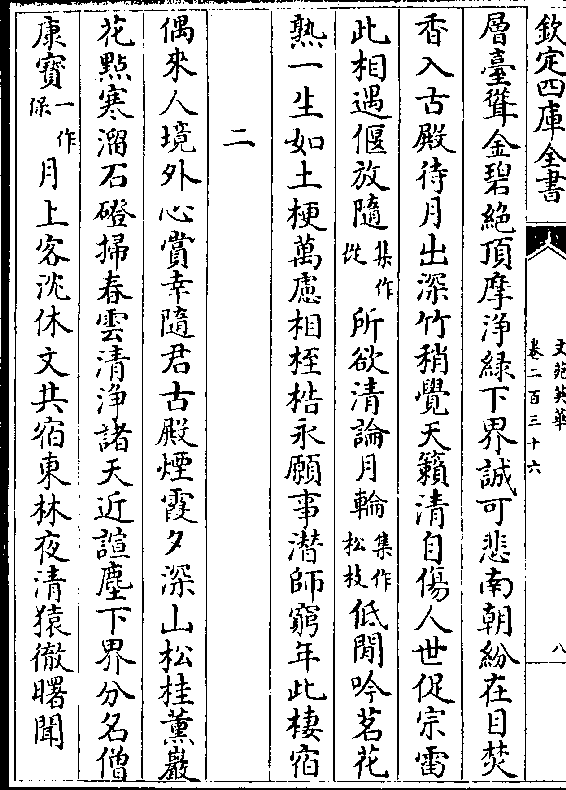 欽定四庫全書
文苑英華
卷二百三十六
八
層臺聳金碧絶頂摩浄緑下界誠可悲南朝紛在目焚
香入古殿待月出深竹稍覺天籟清自傷人世促宗雷
此相遇偃放隨集作從所欲清論月輪集作松枝低閒吟茗花
熟一生如土梗萬慮相桎梏永願事潛師窮年此棲宿
二
偶來人境外心賞幸隨君古殿煙霞夕深山松桂薰巖
花點寒溜石磴掃春雲清浄諸天近諠塵下界分名僧
康寶一作保月上客沈休文共宿東林夜清猿徹曙聞